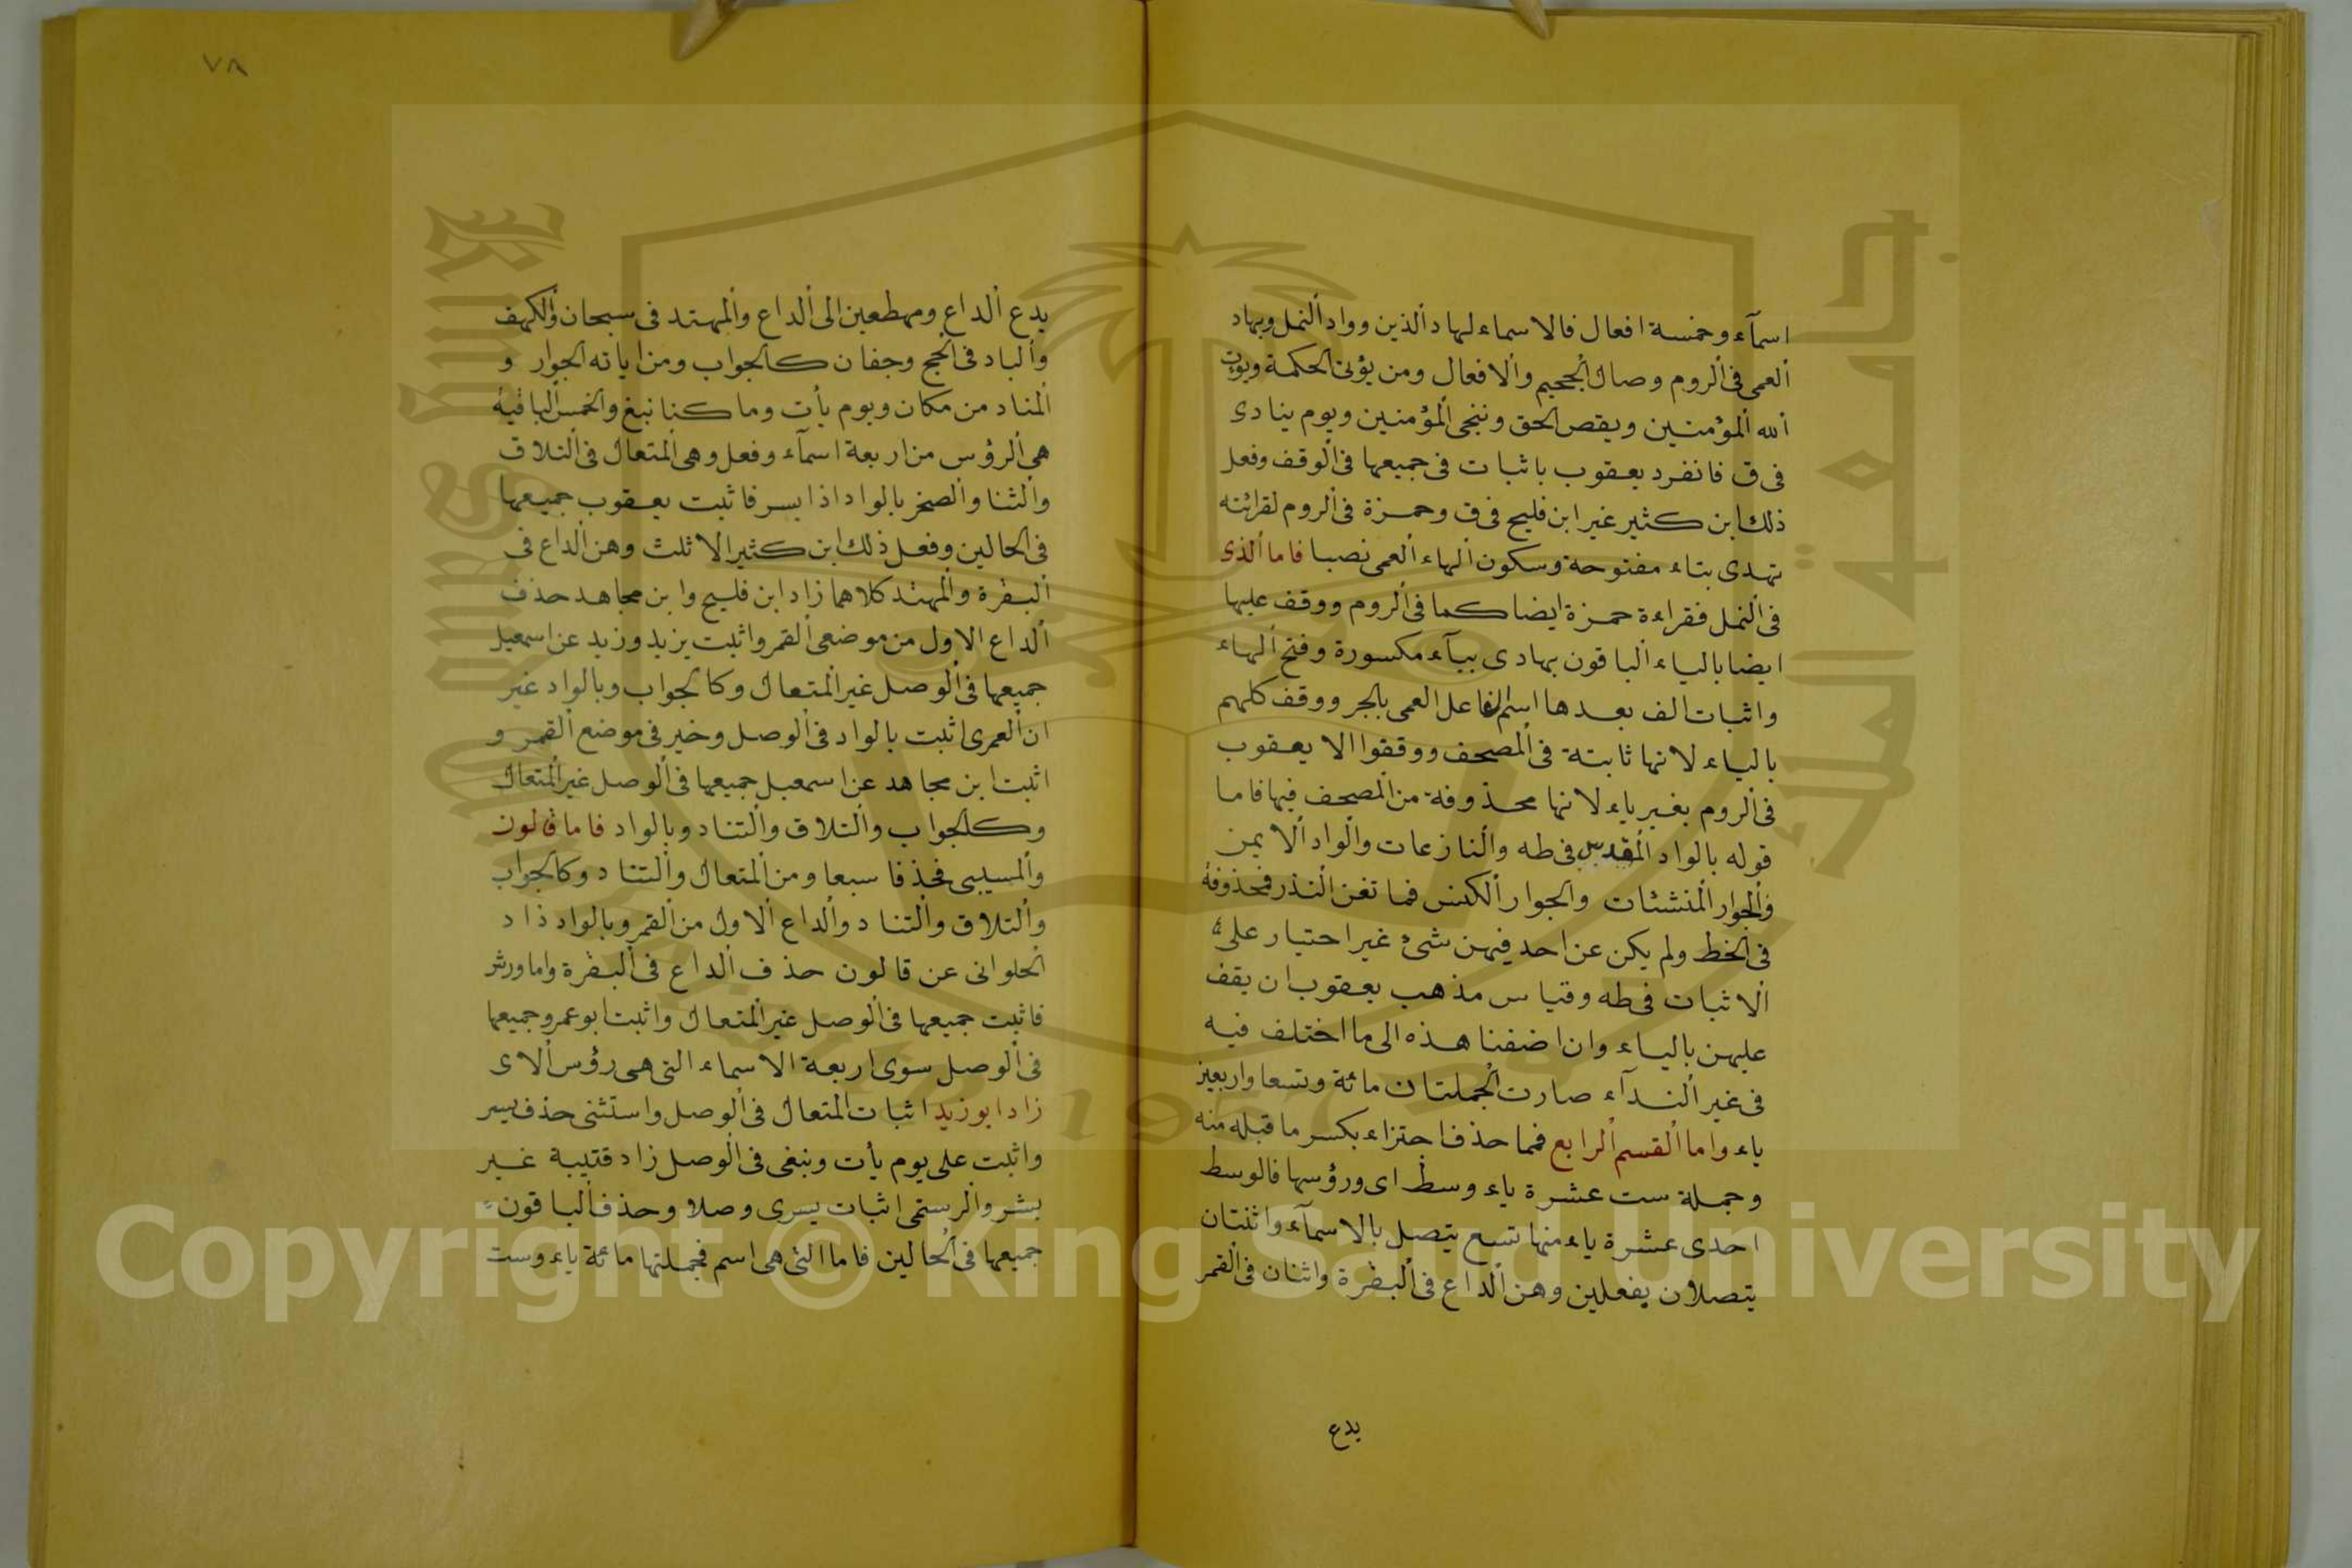 اسمآء وخمسة افعال فالاسماء لهاد الذين وواد النمل وبهاد
العمى فى الروم وصال الجحيم والافعال ومن يؤتى الحكمة ويؤت
الله المؤمنين ويقص الحق وننجى المؤمنين ويوم ينادى
فى ق فانفرد يعقوب باثبات فى جميعها فى الوقف وفعل
ذلك ابن كثير غير ابن فليح فى ق وحمزة فى الروم لقرائته
تهدى بتاء مفتوحة وسكون الهاء العمى نصبا فاما الذى
فى النمل فقراءة حمزة ايضا كما فى الروم ووقف عليها
ايضا بالياء الباقون بهادى ببآء مكسورة وفتح الهاء
واثبات الف بعدها اسم الفاعل العمى بالجر ووقف كلهم
بالياء لانها ثابتة فى المصحف ووقفوا الا يعقوب
فى الروم بغير ياء لانها محذوفة من المصحف فيها فاما
قوله بالواد المقدس فى طه والنازعات والواد الايمن
والجوار المنشئات والجوار الكنس فما تغن النذر فمحذوفة
فى الخط ولم يكن عن احد فيهن شئ غير احتيار على
الاثبات فى طه وقياس مذهب يعقوب ان يقف
عليهن بالياء وان اضفنا هذه الى ما اختلف فيه
فى غير الندآء صارت الجملتان مائة وتسعا واربعين
ياء واما القسم الرابع فمما حذف اجتزاء بكسر ما قبله منه
وجملة ست عشرة ياء وسط اى ورؤسها فالوسط
احدى عشرة ياء منها تسع يتصل بالاسمآء واثنتان
يتصلان يفعلين وهن الداع فى البقرة واثنان فى القمر
يدع
٧٨
يدع الداع ومهطعين الى الداع والمهتد فى سبحان والكهف
والباد فى الحج وجفان كالجواب ومن اياته الجوار و
المناد من مكان ويوم يأت وما كنا نبغ والخمس الباقية
هى الرؤس من اربعة اسمآء وفعل وهى المتعال فى التلاق
والثنا والصخر بالواد اذا يسر فاثبت يعقوب جميعها
فى الحالين وفعل ذلك ابن كثير الا ثلث وهن الداع فى
البقرة والمهتد كلاهما زاد ابن فليح وابن مجاهد حذف
الداع الاول من موضعى القمر واثبت يزيد وزيد عن اسمعيل
جميعها فى الوصل غير المتعال وكالجواب وبالواد غير
ان العمرى اثبت بالواد فى الوصل وخير فى موضع القمر و
اثبت ابن مجاهد عن اسمعيل جميعها فى الوصل غير المتعال
وكالجواب والتلاق والتناد وبالواد فاما قالون
والمسيبى فحذفا سبعا ومن المتعال والتناد وكالجواب
والتلاق والتناد والداع الاول من القمر وبالواد ذاد
الحلوانى عن قالون حذف الداع فى البقرة واما ورش
فاثبت جميعها فى الوصل غير المتعال واثبت ابو عمرو جميعها
فى الوصل سوى اربعة الاسماء التى هى رؤس الاى
زاد ابو زيد اثبات المتعال فى الوصل واستثنى حذف يسر
واثبت على يوم يأت ونبغى فى الوصل زاد قتيبة غير
بشر والرستمى اثبات يسرى وصلا وحذف الباقون
جميعها فى الحالين فاما التى هى اسم فجملتها مائة ياء وست
Copyright © King Saud University
King Saud University
جامعة الملك سعود
1957